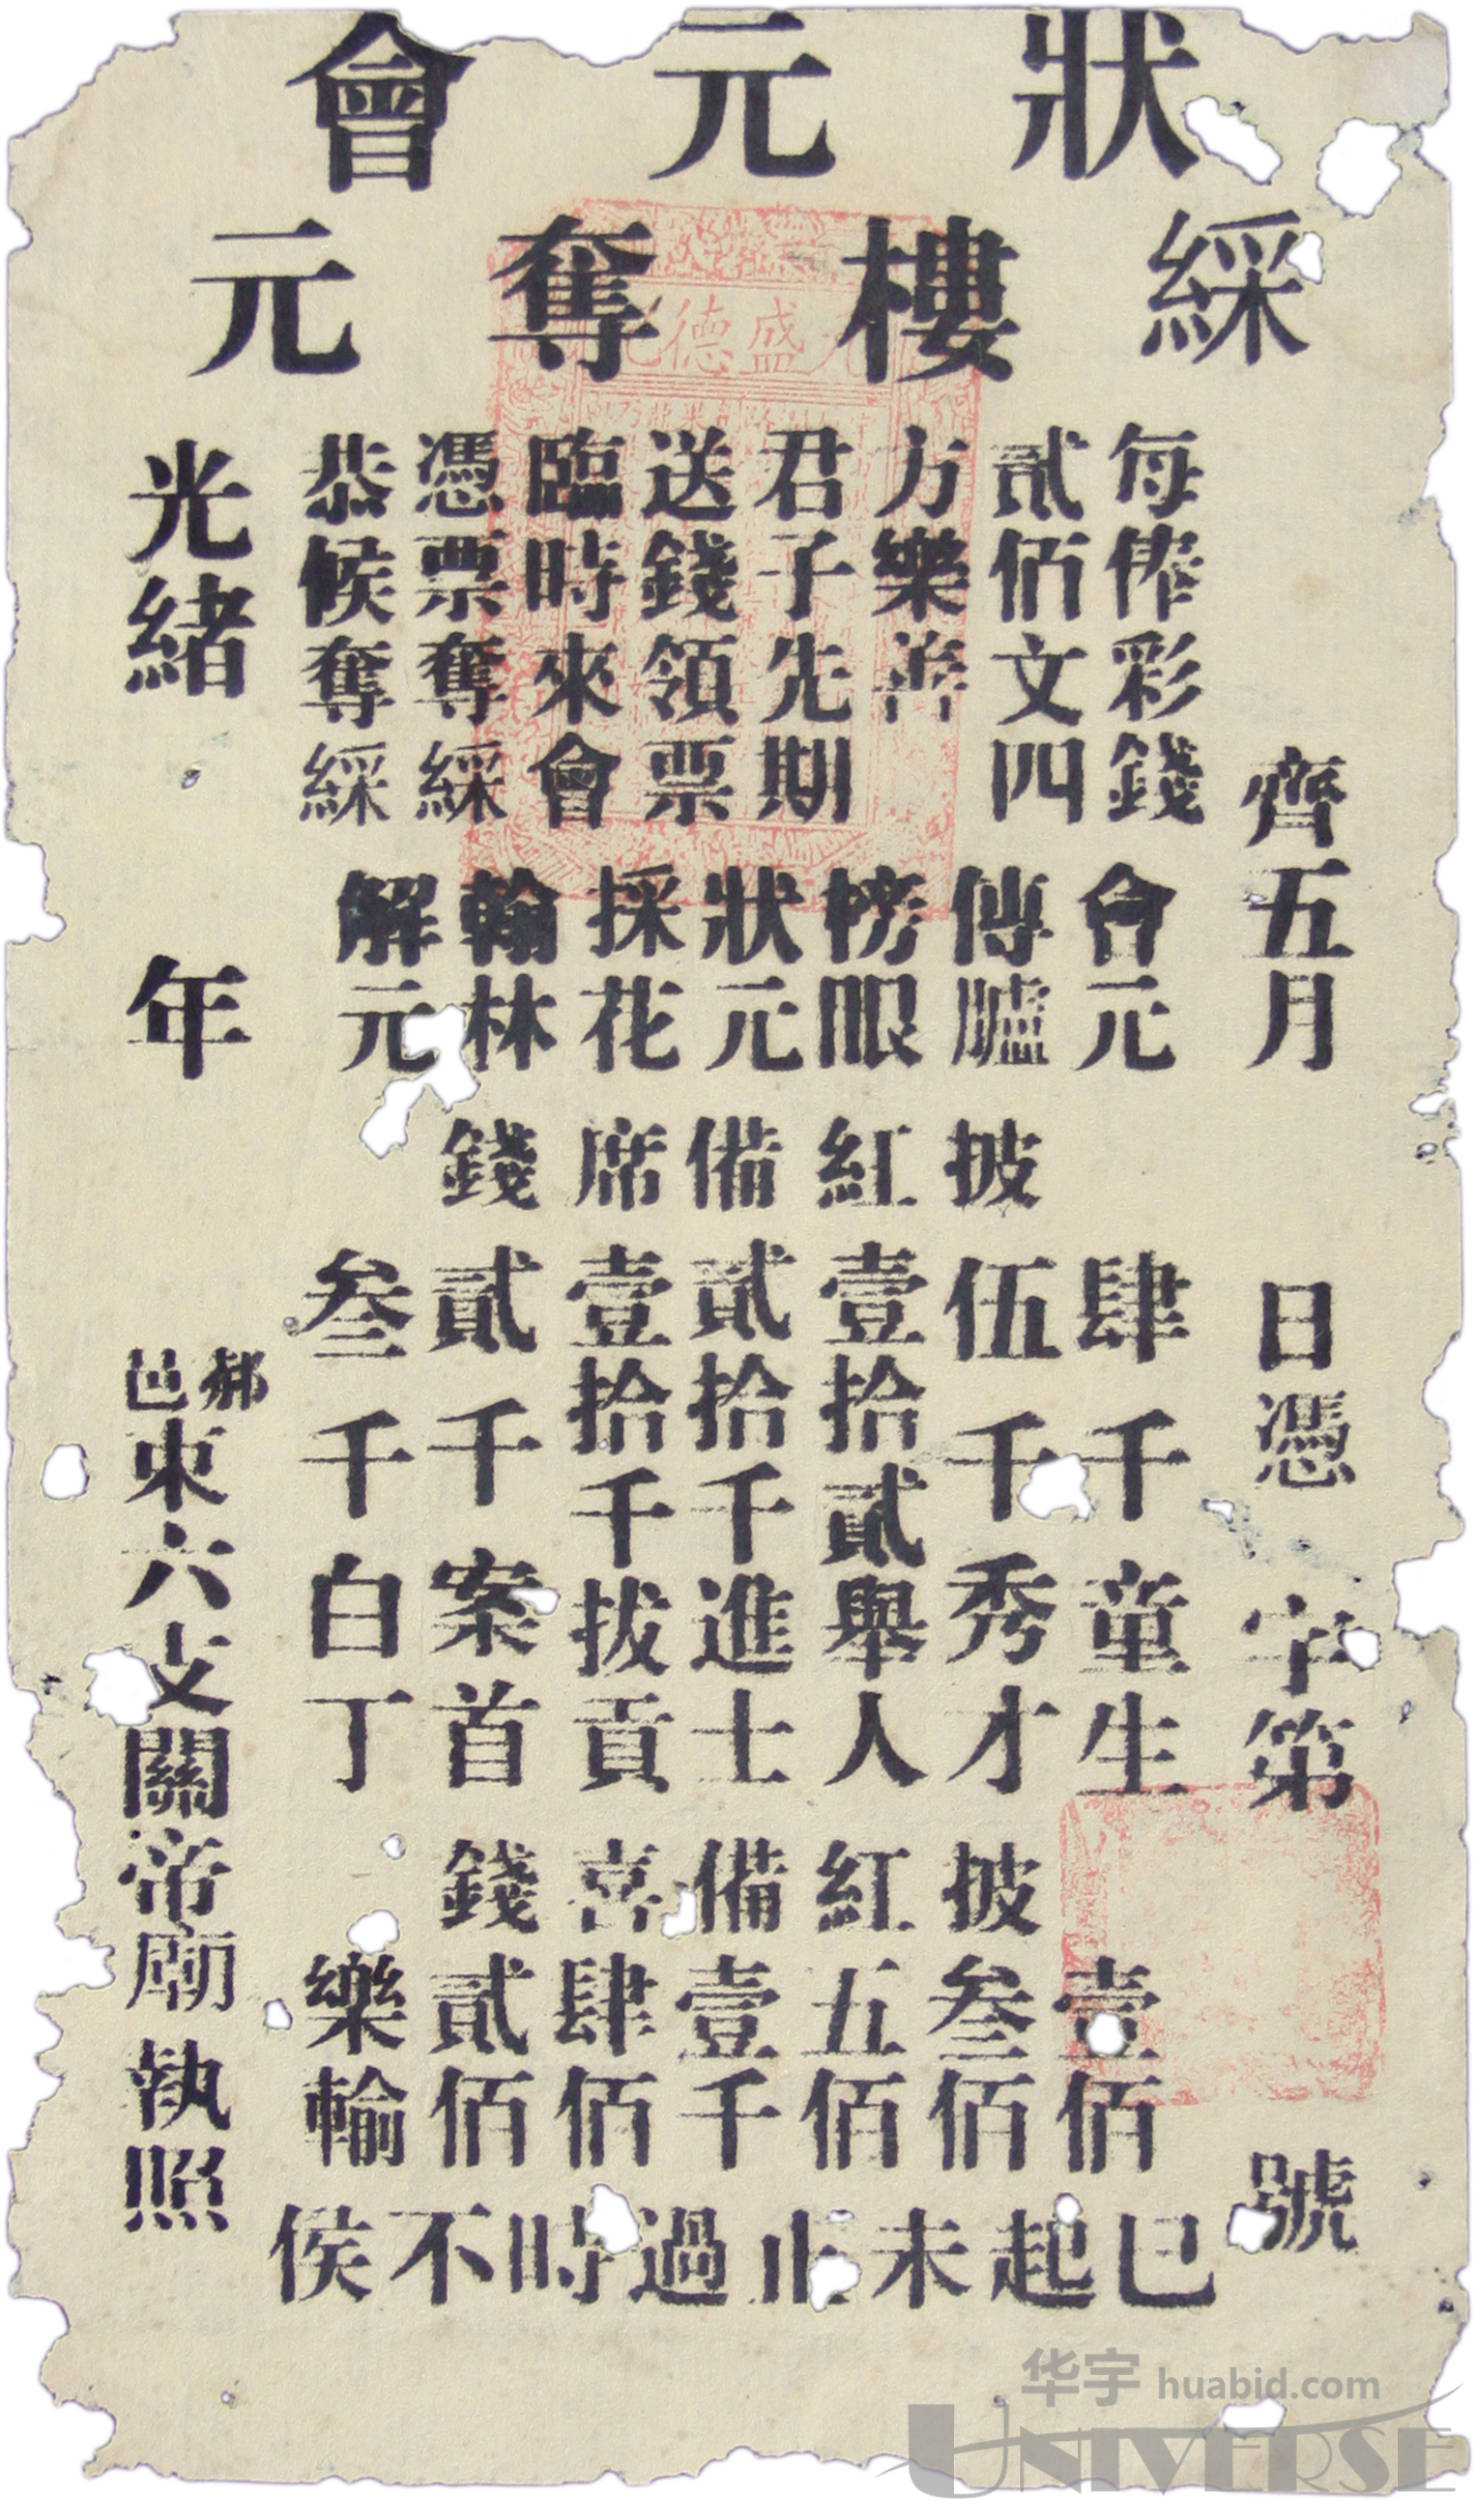 狀元會
綵樓奪元
齊五月 日憑 字第 號
每俸彩錢
貳佰文四
方樂善
君子先期
送錢領票
臨時來會
憑票奪綵
恭候奪綵
會元 肆千 童生 壹佰
傳臚 伍千 秀才 叁佰
榜眼 壹拾貳 舉人 五佰
狀元 貳拾千 進士 壹千
採花 壹拾千 拔貢 肆佰
翰林 貳千 案首 貳佰
解元 叁千 白丁 樂輸
披紅備席錢
披紅備喜錢
巳起未止過時不侯
光緒 年 郝邑東六支關帝廟執照
盛德
华宇 huabid.com
UNIVERSE